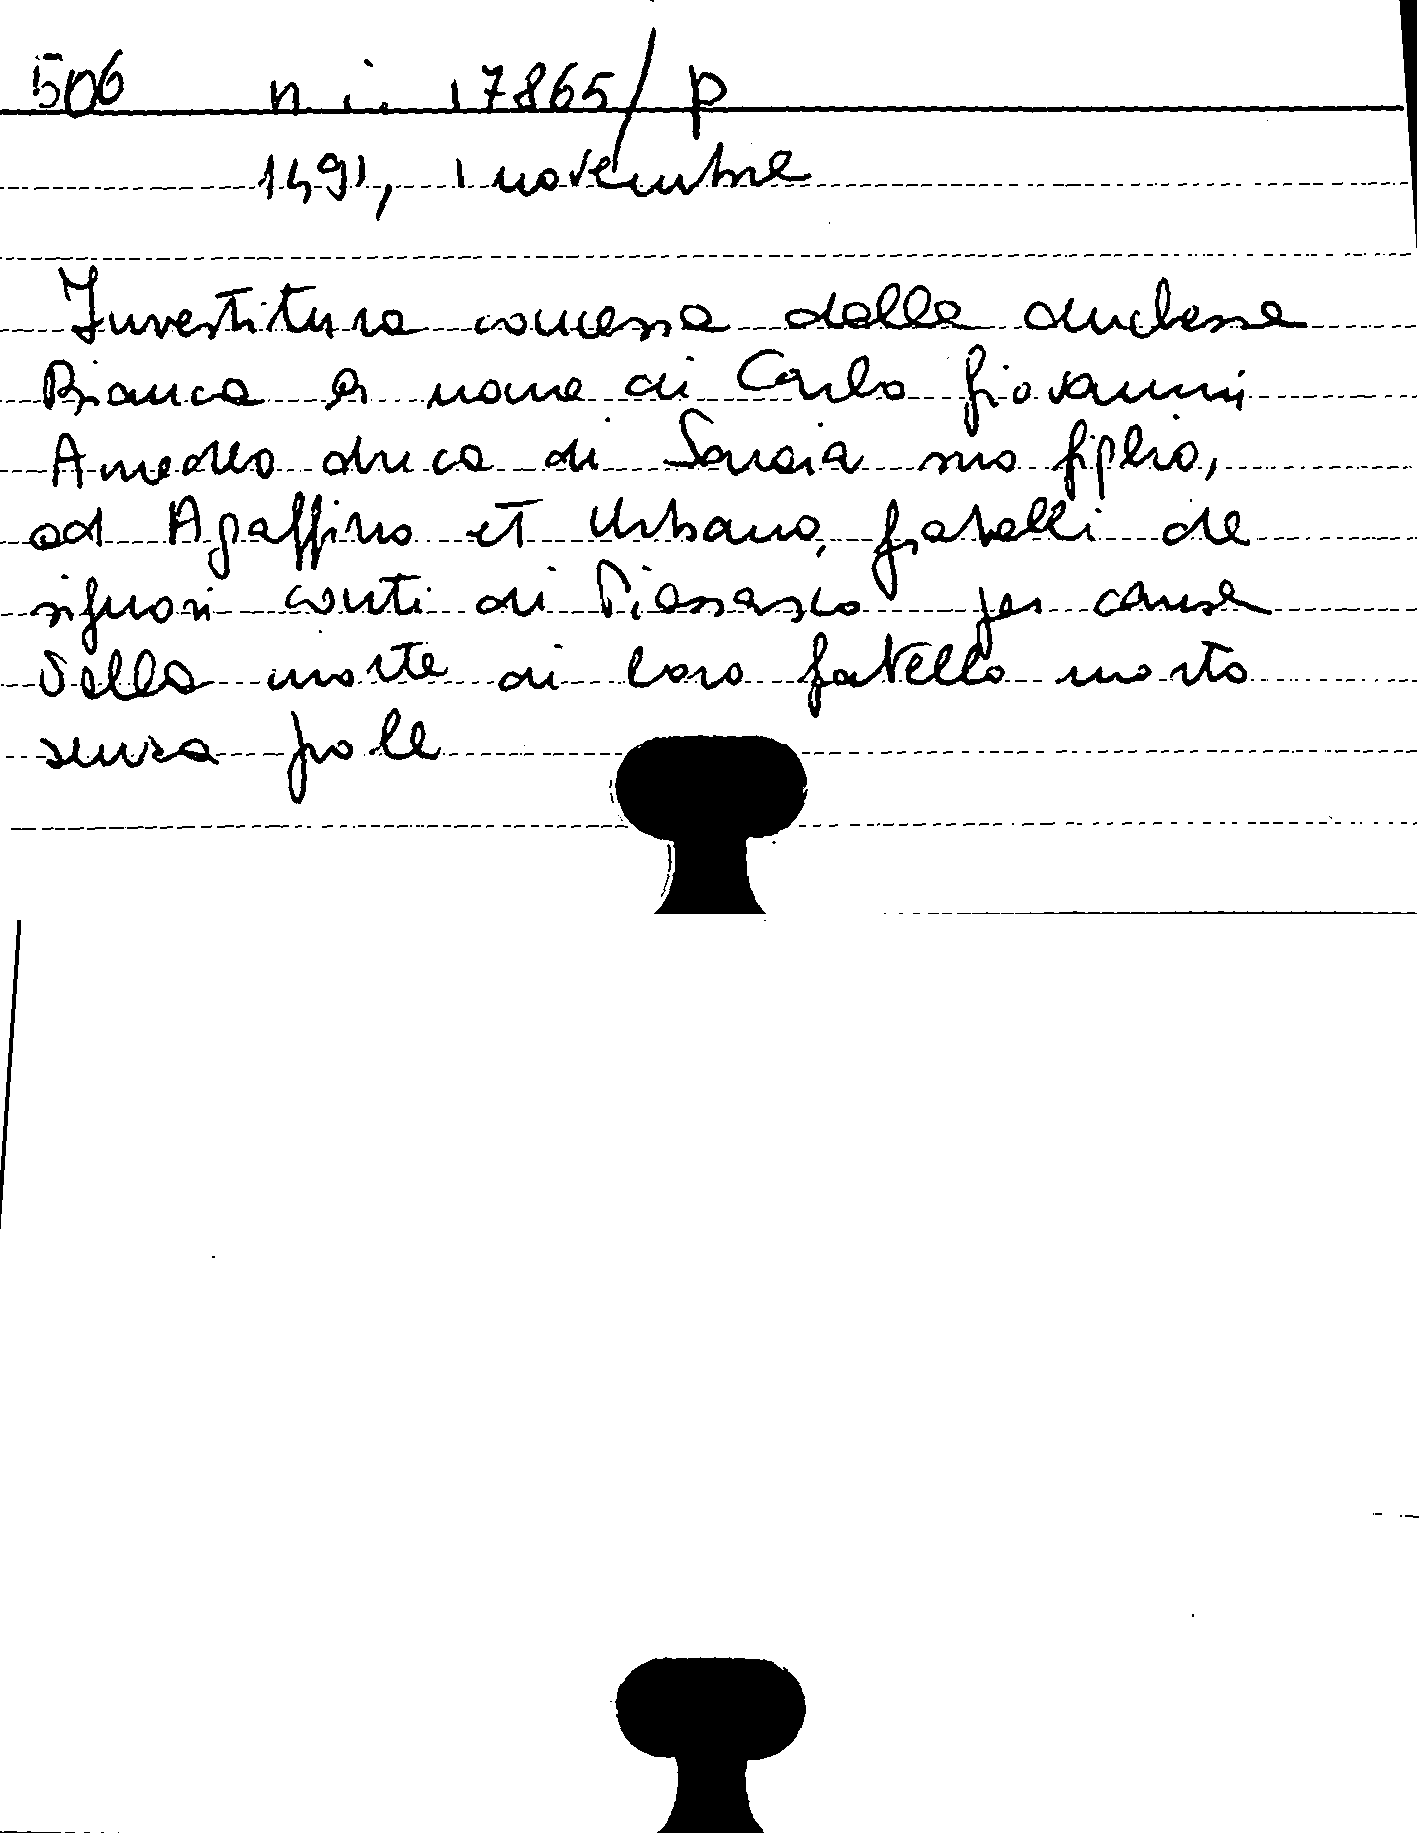 506 n. i. 17865/P
1491, 1 novembre
Investitura concessa dalla duchessa
Bianca a nome di Carlo Giovanni
Amedeo duca di Savoia suo figlio,
ad Agaffino et Urbano, fratelli de
signori conti di Piossasco per causa
della morte di loro fratello morto
senza prole